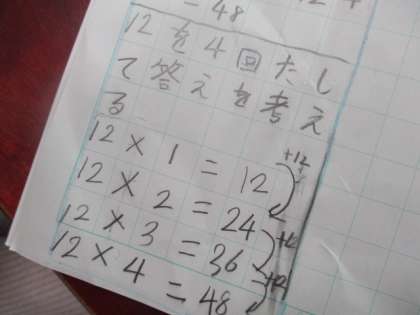 = 48
12
12を4回たし
て答えを考え
る
12 × 1 = 12
+12
12 × 2 = 24
+12
12 × 3 = 36
+12
12 × 4 = 48